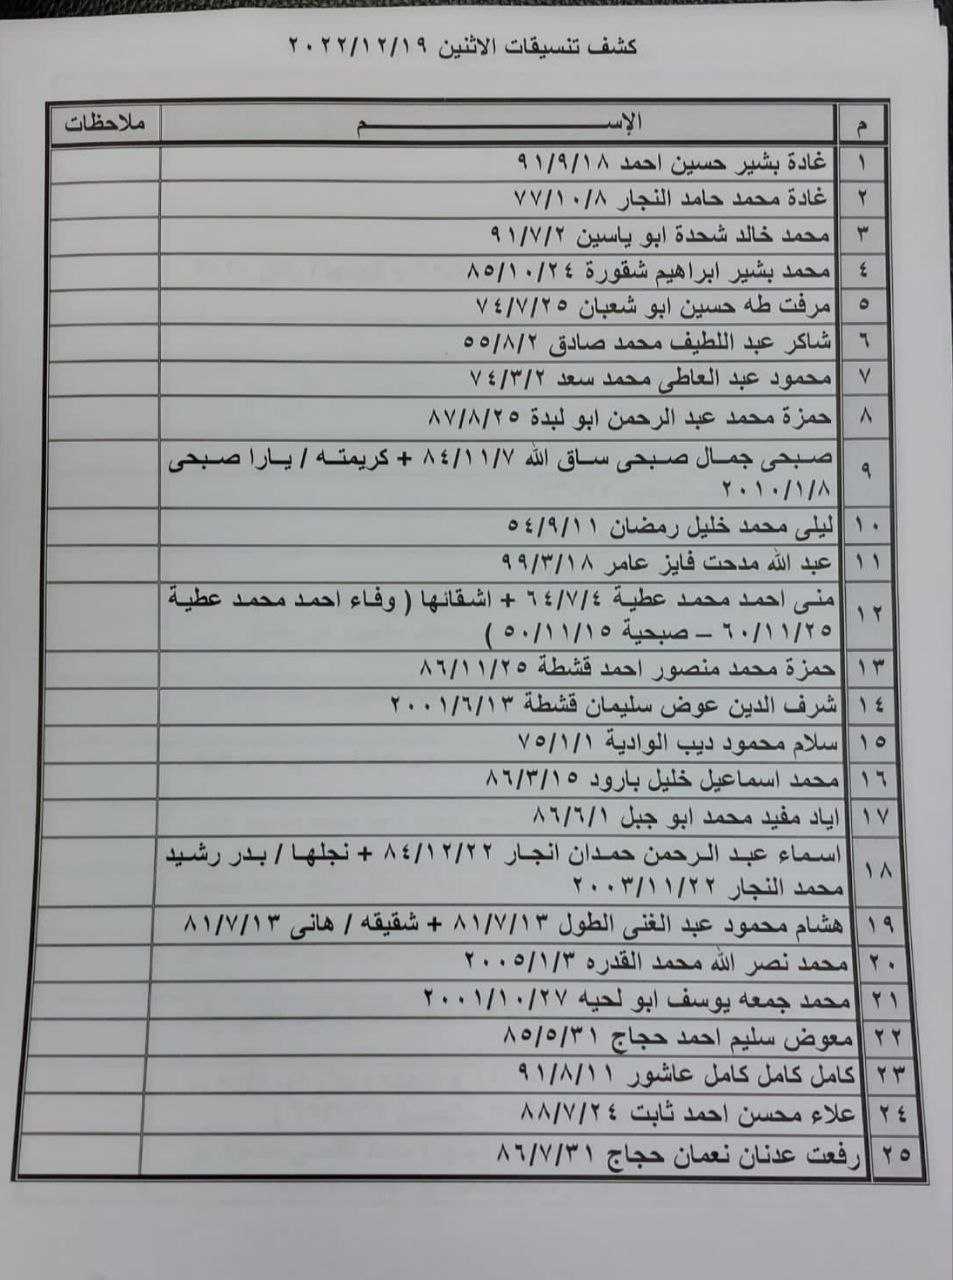 كشف تنسيقات الاثنين ٢٠٢٢/١٢/١٩
م الإســـــم ملاحظات
١ غادة بشير حسين احمد ٩١/٩/١٨
٢ غادة محمد حامد النجار ٧٧/١٠/٨
٣ محمد خالد شحدة ابو ياسين ٩١/٧/٢
٤ محمد بشير ابراهيم شقورة ٨٥/١٠/٢٤
٥ مرفت طه حسين ابو شعبان ٧٤/٧/٢٥
٦ شاكر عبد اللطيف محمد صادق ٥٥/٨/٢
٧ محمود عبد العاطى محمد سعد ٧٤/٣/٢
٨ حمزة محمد عبد الرحمن ابو لبدة ٨٧/٨/٢٥
٩ صبحى جمال صبحى ساق الله ٨٤/١١/٧ + كريمته / يارا صبحى
٢٠١٠/١/٨
١٠ ليلى محمد خليل رمضان ٥٤/٩/١١
١١ عبد الله مدحت فايز عامر ٩٩/٣/١٨
١٢ منى احمد محمد عطية ٦٤/٧/٤ + اشقائها ( وفاء احمد محمد عطية
٦٠/١١/٢٥ – صبحية ٥٠/١١/١٥ )
١٣ حمزة محمد منصور احمد قشطة ٨٦/١١/٢٥
١٤ شرف الدين عوض سليمان قشطة ٢٠٠١/٦/١٣
١٥ سلام محمود ديب الوادية ٧٥/١/١
١٦ محمد اسماعيل خليل بارود ٨٦/٣/١٥
١٧ اياد مفيد محمد ابو جبل ٨٦/٦/١
١٨ اسماء عبد الرحمن حمدان انجار ٨٤/١٢/٢٢ + نجلها / بدر رشيد
محمد النجار ٢٠٠٣/١١/٢٢
١٩ هشام محمود عبد الغنى الطول ٨١/٧/١٣ + شقيقه / هانى ٨١/٧/١٣
٢٠ محمد نصر الله محمد القدره ٢٠٠٥/١/٣
٢١ محمد جمعه يوسف ابو لحيه ٢٠٠١/١٠/٢٧
٢٢ معوض سليم احمد حجاج ٨٥/٥/٣١
٢٣ كامل كامل كامل عاشور ٩١/٨/١١
٢٤ علاء محسن احمد ثابت ٨٨/٧/٢٤
٢٥ رفعت عدنان نعمان حجاج ٨٦/٧/٣١